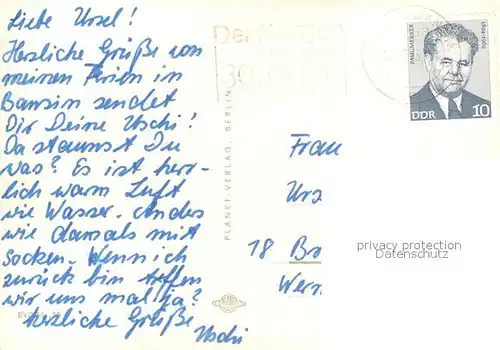 Liebe Ursel!
Herzliche Grüße von
meinen Ferien in
Bansin sendet
Dir Deine Uschi!
Da staunst Du
was? Es ist herr-
lich warm Luft
wie Wasser. Anders
wie damals mit
Socken. Wenn ich
zurück bin treffen
wir uns mal ja?
herzliche Grüße
Uschi
PLANET-VERLAG, BERLIN
PAUL MERKER
1894-1969
DDR 10
Frau
Urs
18 Bra
Wern
privacy protection
Datenschutz